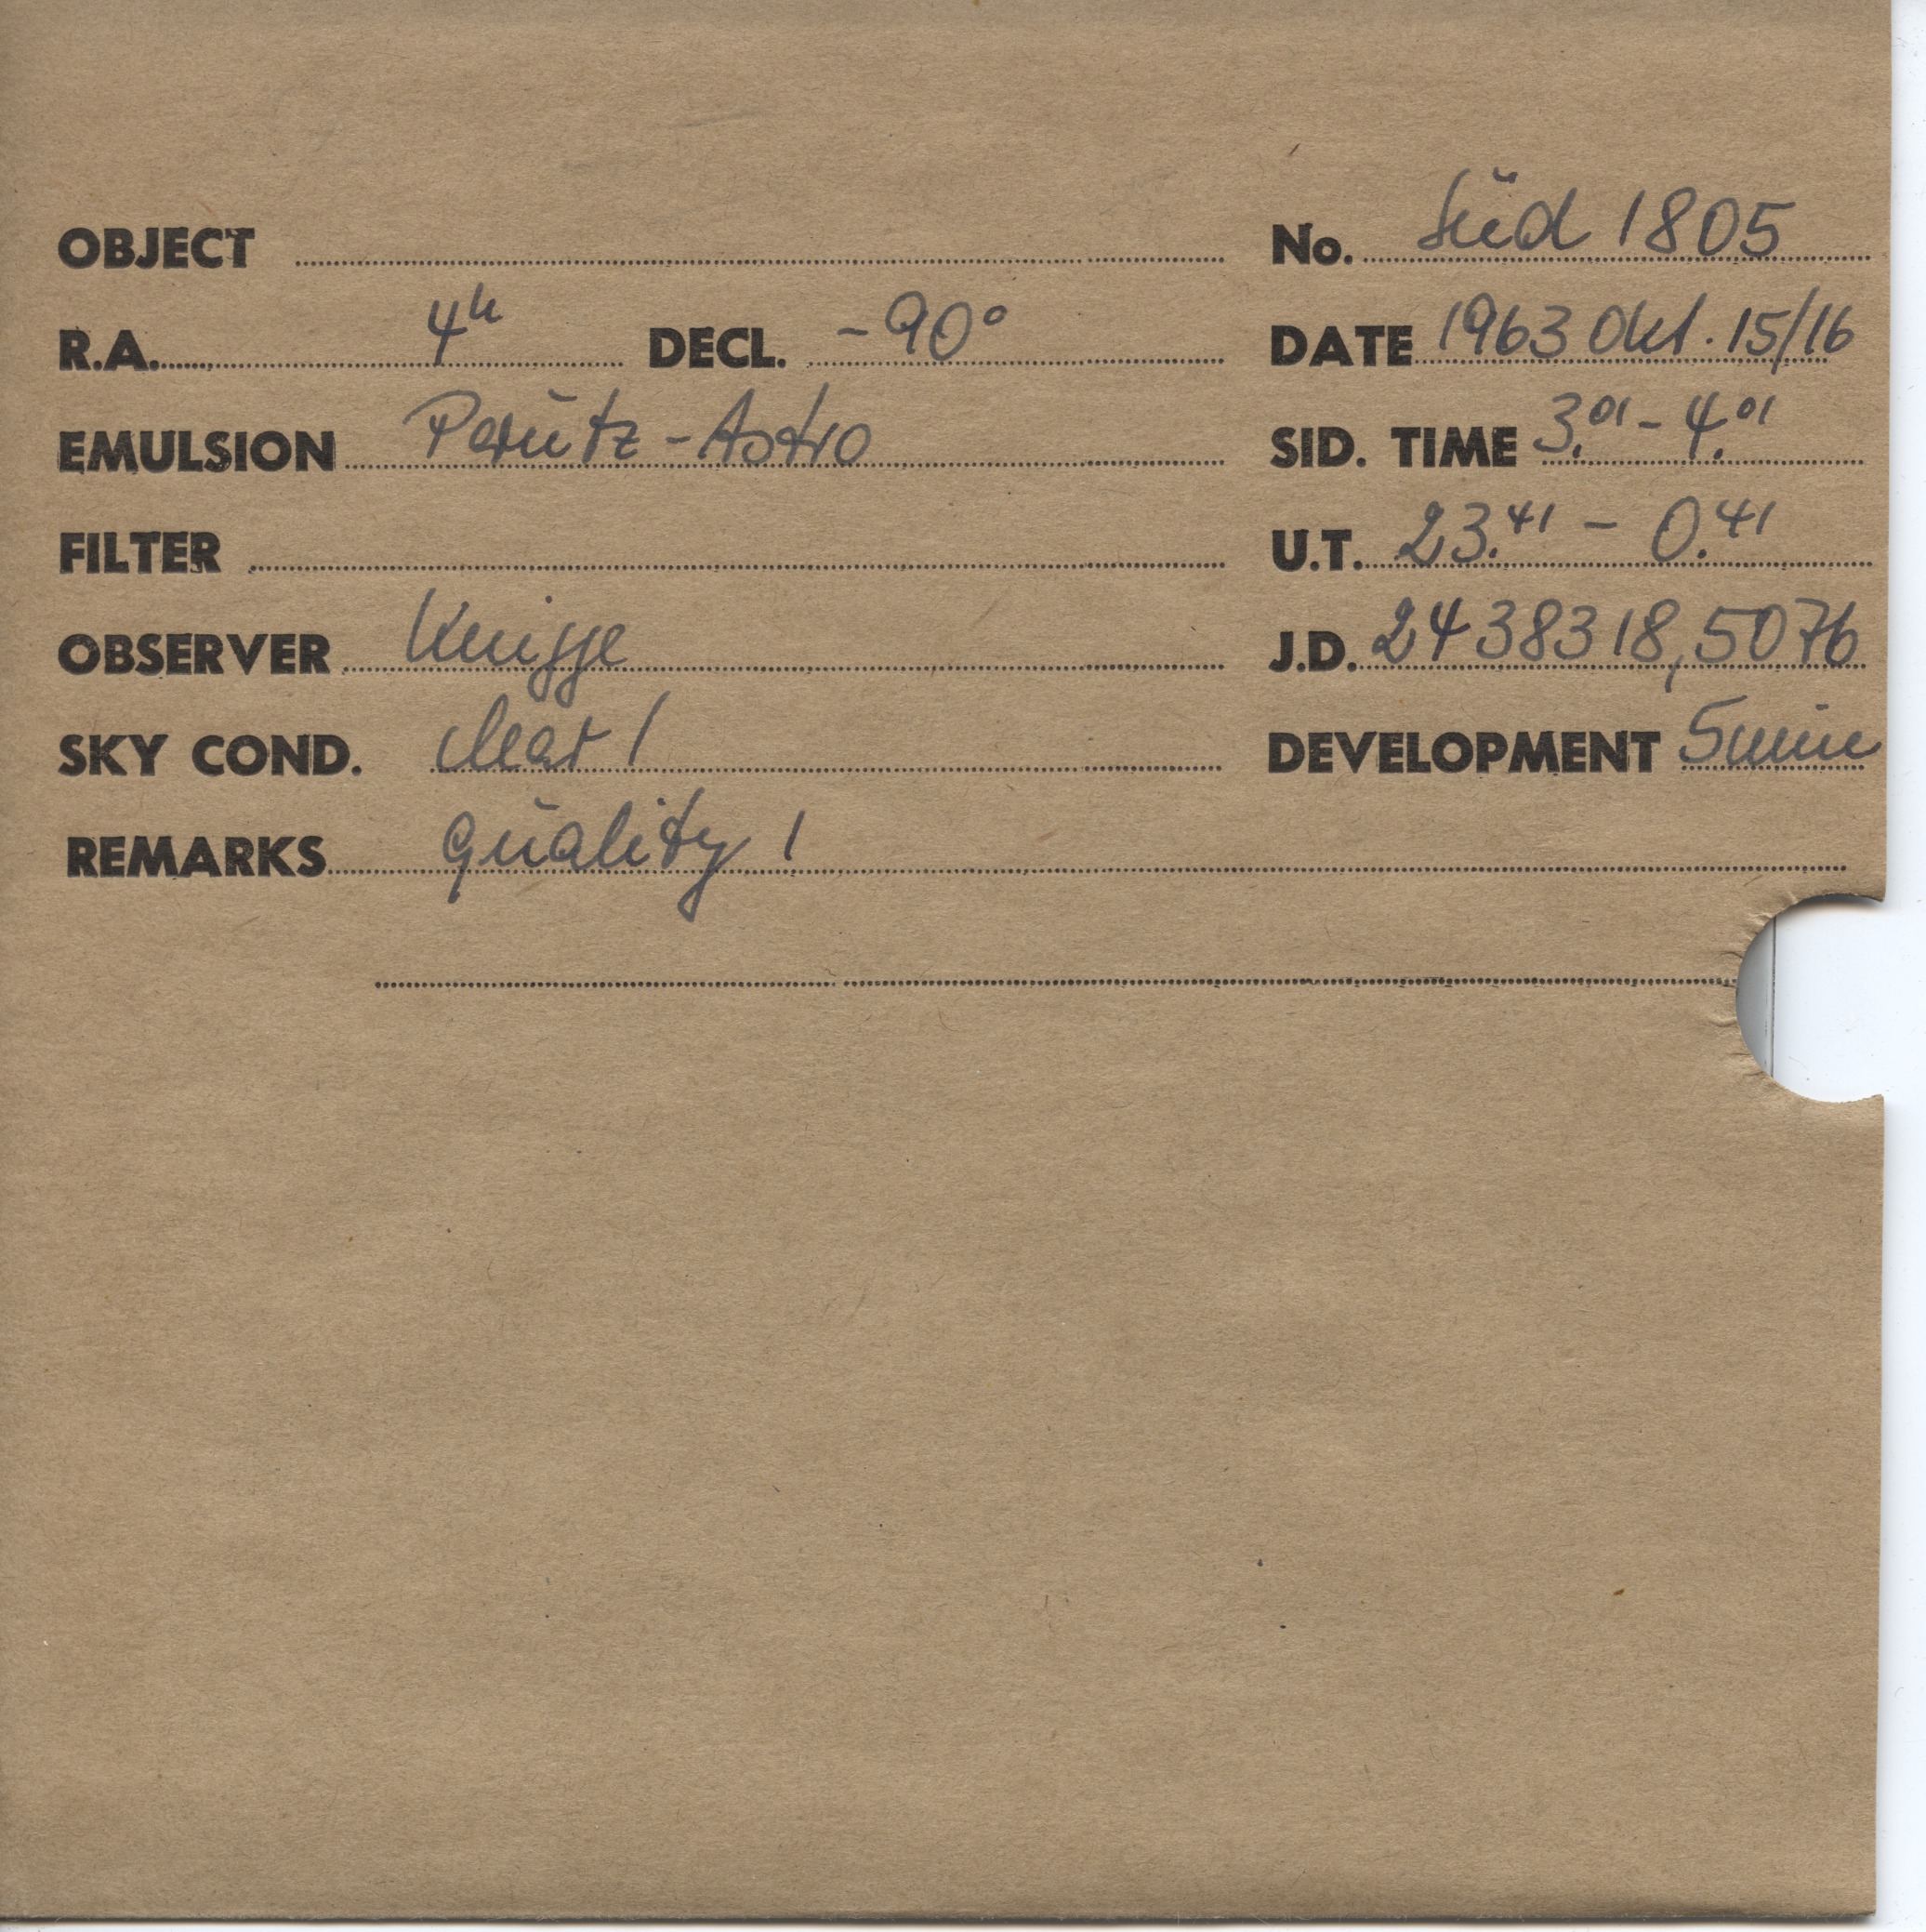 OBJECT No. Süd 1805
R.A. 4h DECL. -90° DATE 1963 Okt. 15/16
EMULSION Perutz-Astro SID. TIME 3.01 - 4.01
FILTER U.T. 23.41 - 0.41
OBSERVER Knigge J.D. 2438318,5076
SKY COND. clear 1 DEVELOPMENT 5min
REMARKS quality 1